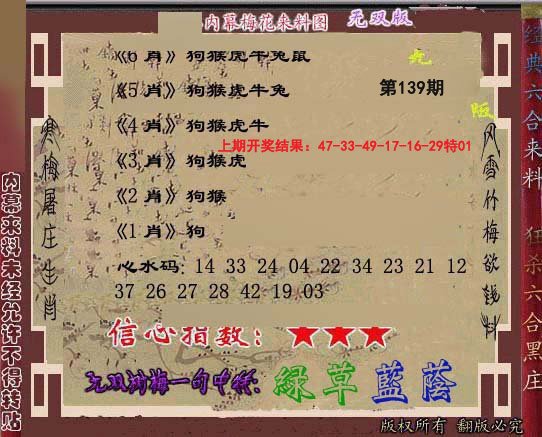 内幕梅花来料图 无双版
《6 肖》狗猴虎牛兔鼠
《5 肖》狗猴虎牛兔
第139期
《4 肖》狗猴虎牛
上期开奖结果：47-33-49-17-16-29特01
《3 肖》狗猴虎
《2 肖》狗猴
《1 肖》狗
心水码：14 33 24 04 22 34 23 21 12
37 26 27 28 42 19 03
信心指数：★★★
无双刘梅一句中特：绿草蓝荫
版权所有 翻版必究
寒梅屠庄生肖
风雪竹梅欲钱料
内幕来料未经允许不得转贴
经典六合来料
狂杀六合黑庄